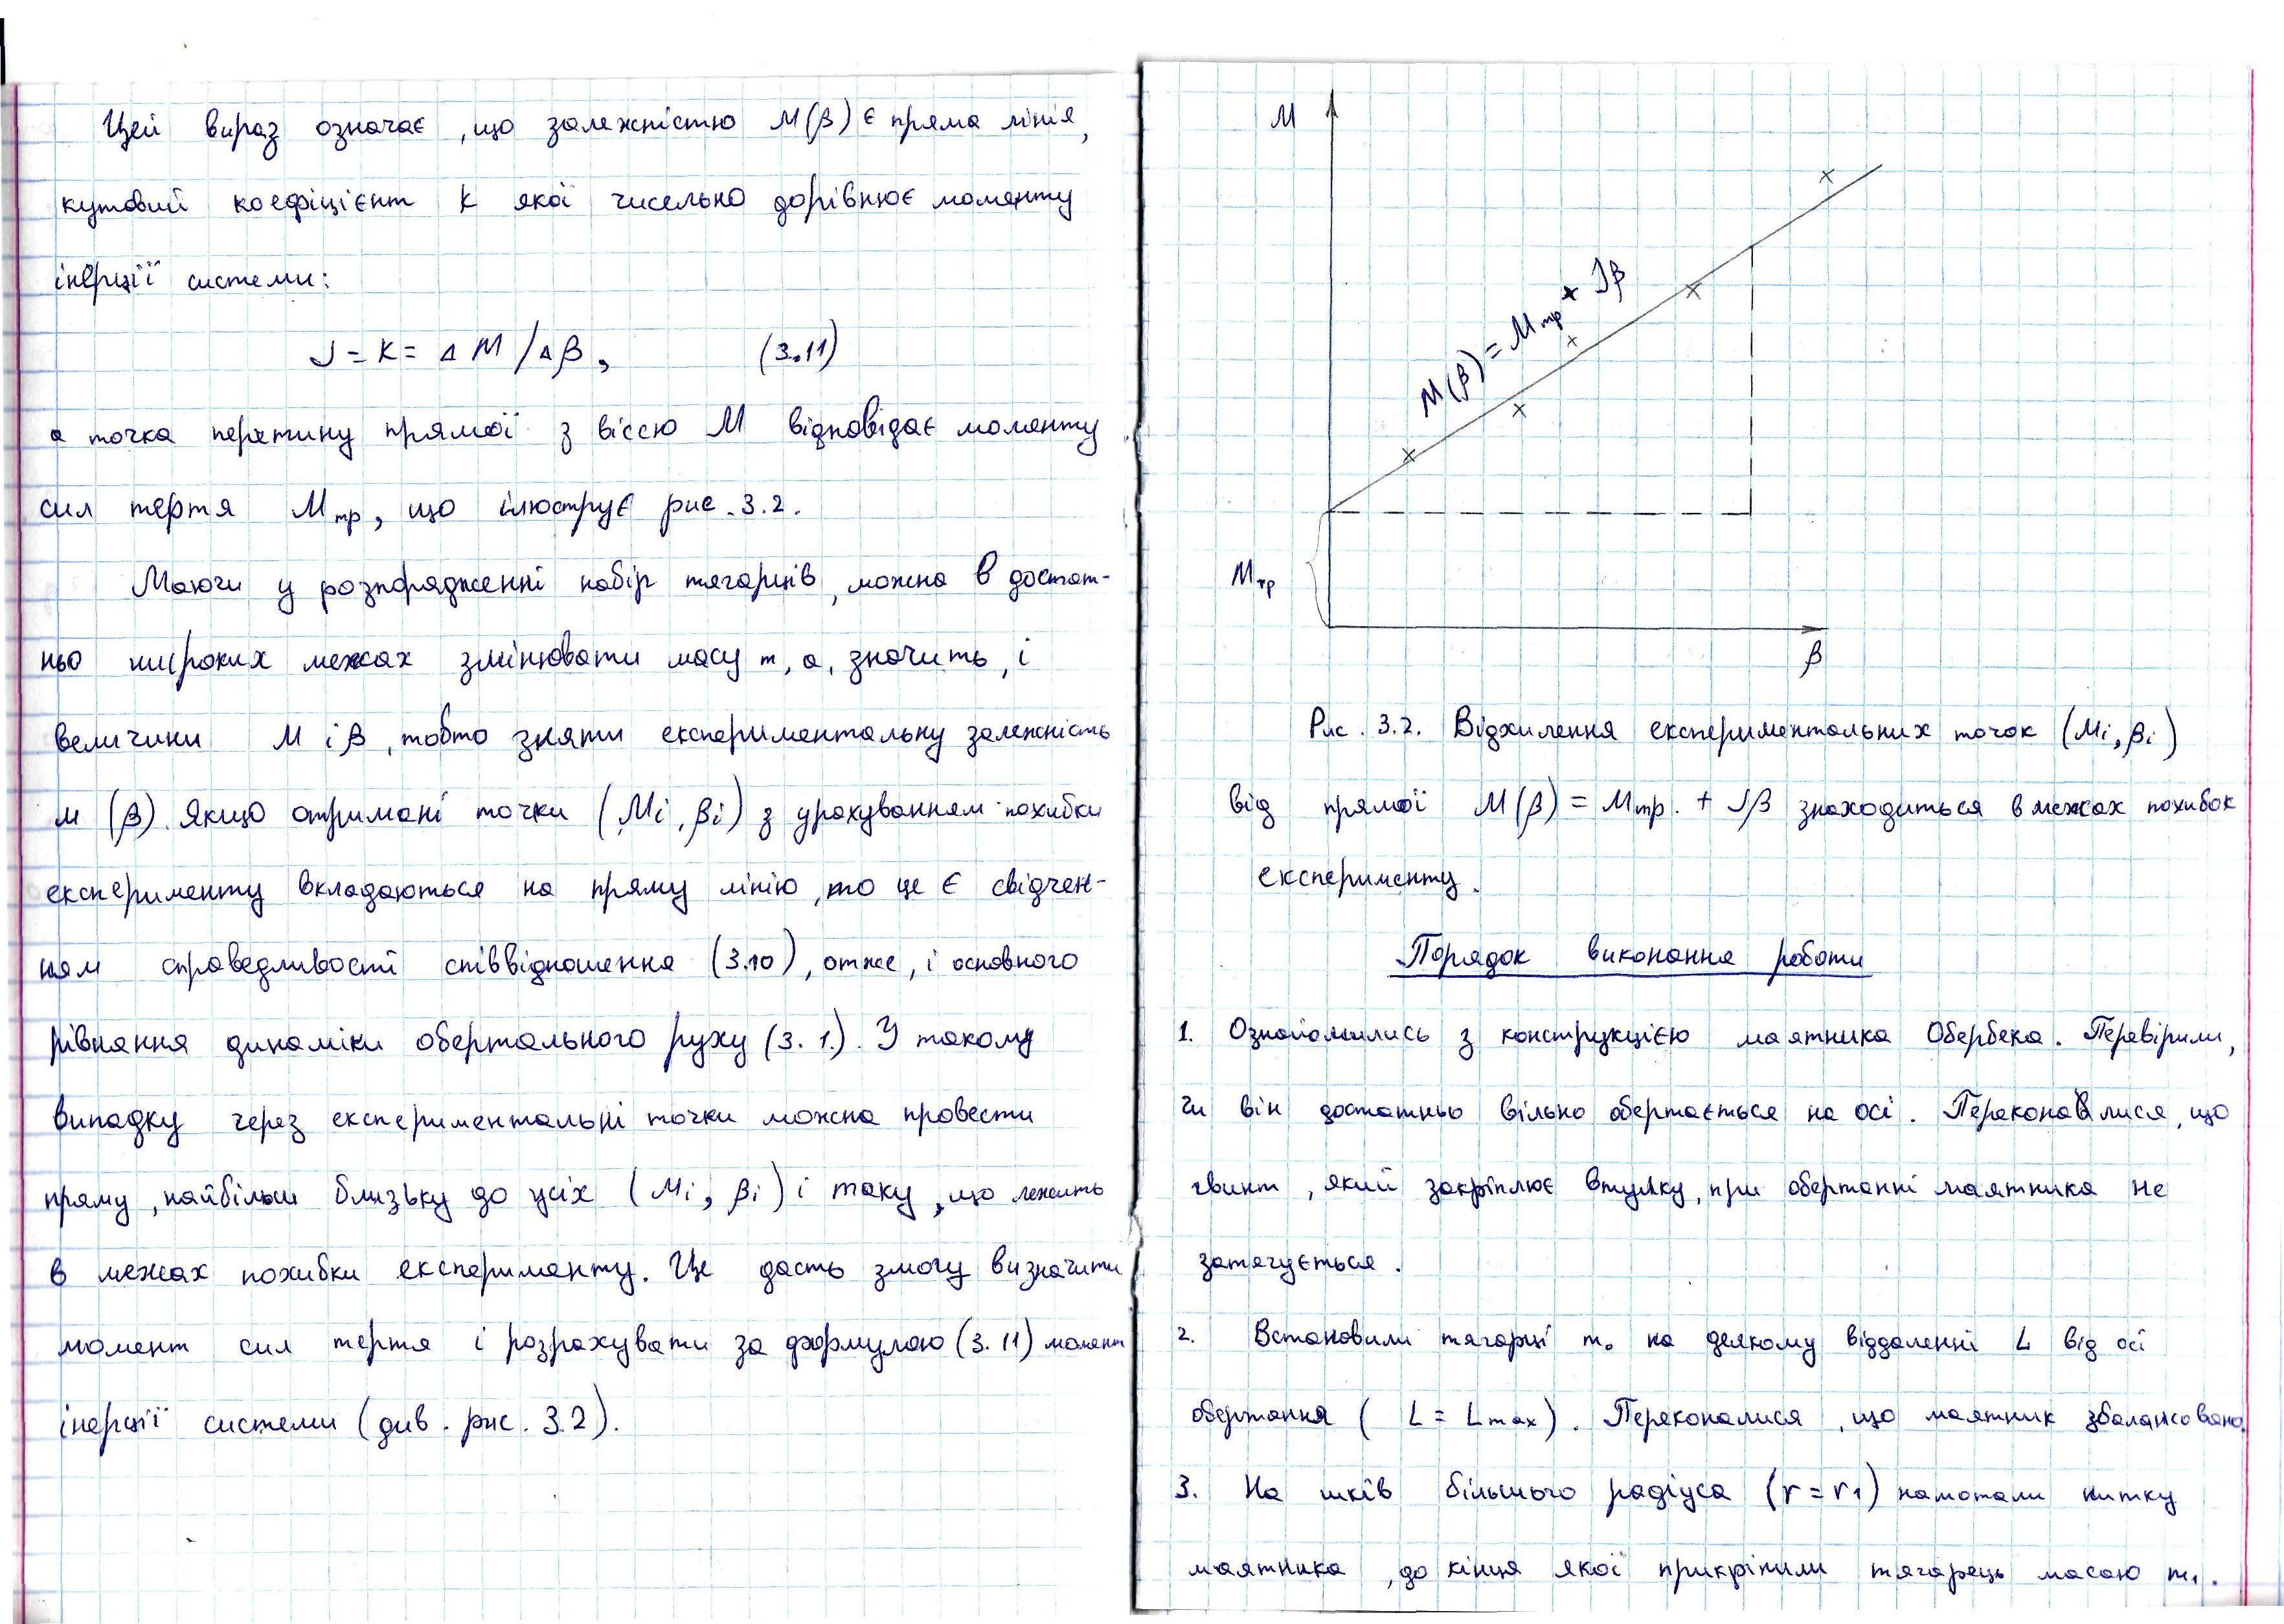 Цей вираз означає, що залежністю M(β) є пряма лінія,
кутовий коефіцієнт k якої чисельно дорівнює моменту
інерції системи:
J = K = Δ M / Δ β, (3.11)
а точка перетину прямої з віссю M відповідає моменту
сил тертя Mтр, що ілюструє рис. 3.2.
Маючи у розпорядженні набір тягарців, можна в достат-
ньо широких межах змінювати масу m, а, значить, і
величини M і β, тобто зняти експериментальну залежність
M (β). Якщо отримані точки (Mi, βi) з урахуванням похибки
експерименту вкладаються на пряму лінію, то це є свідчен-
ням справедливості співвідношення (3.10), отже, і основного
рівняння динаміки обертального руху (3. 1.). У такому
випадку через експериментальні точки можна провести
пряму, найбільш близьку до усіх (Mi, βi) і таку, що лежить
в межах похибки експерименту. Це дасть змогу визначити
момент сил тертя і розрахувати за формулою (3. 11) момент
інерції системи (див. рис. 3.2).
M
M(β) = Mтр + Jβ
Mтр
β
Рис. 3.2. Відхилення експериментальних точок (Mi, βi)
від прямої M(β) = Mтр. + Jβ знаходиться в межах похибок
експерименту.
Порядок виконання роботи
1. Ознайомились з конструкцією маятника Обербека. Перевірили,
чи він достатньо вільно обертається на осі. Переконавлися, що
гвинт, який закріплює втулку, при обертанні маятника не
затягується.
2. Встановили тягарці m₀ на деякому віддаленні L від осі
обертання ( L = Lmax). Переконалися, що маятник збалансовано.
3. На шків більшого радіуса (r = r1) намотали нитку
маятника, до кінця якої прикріпили тягарець масою m₁.